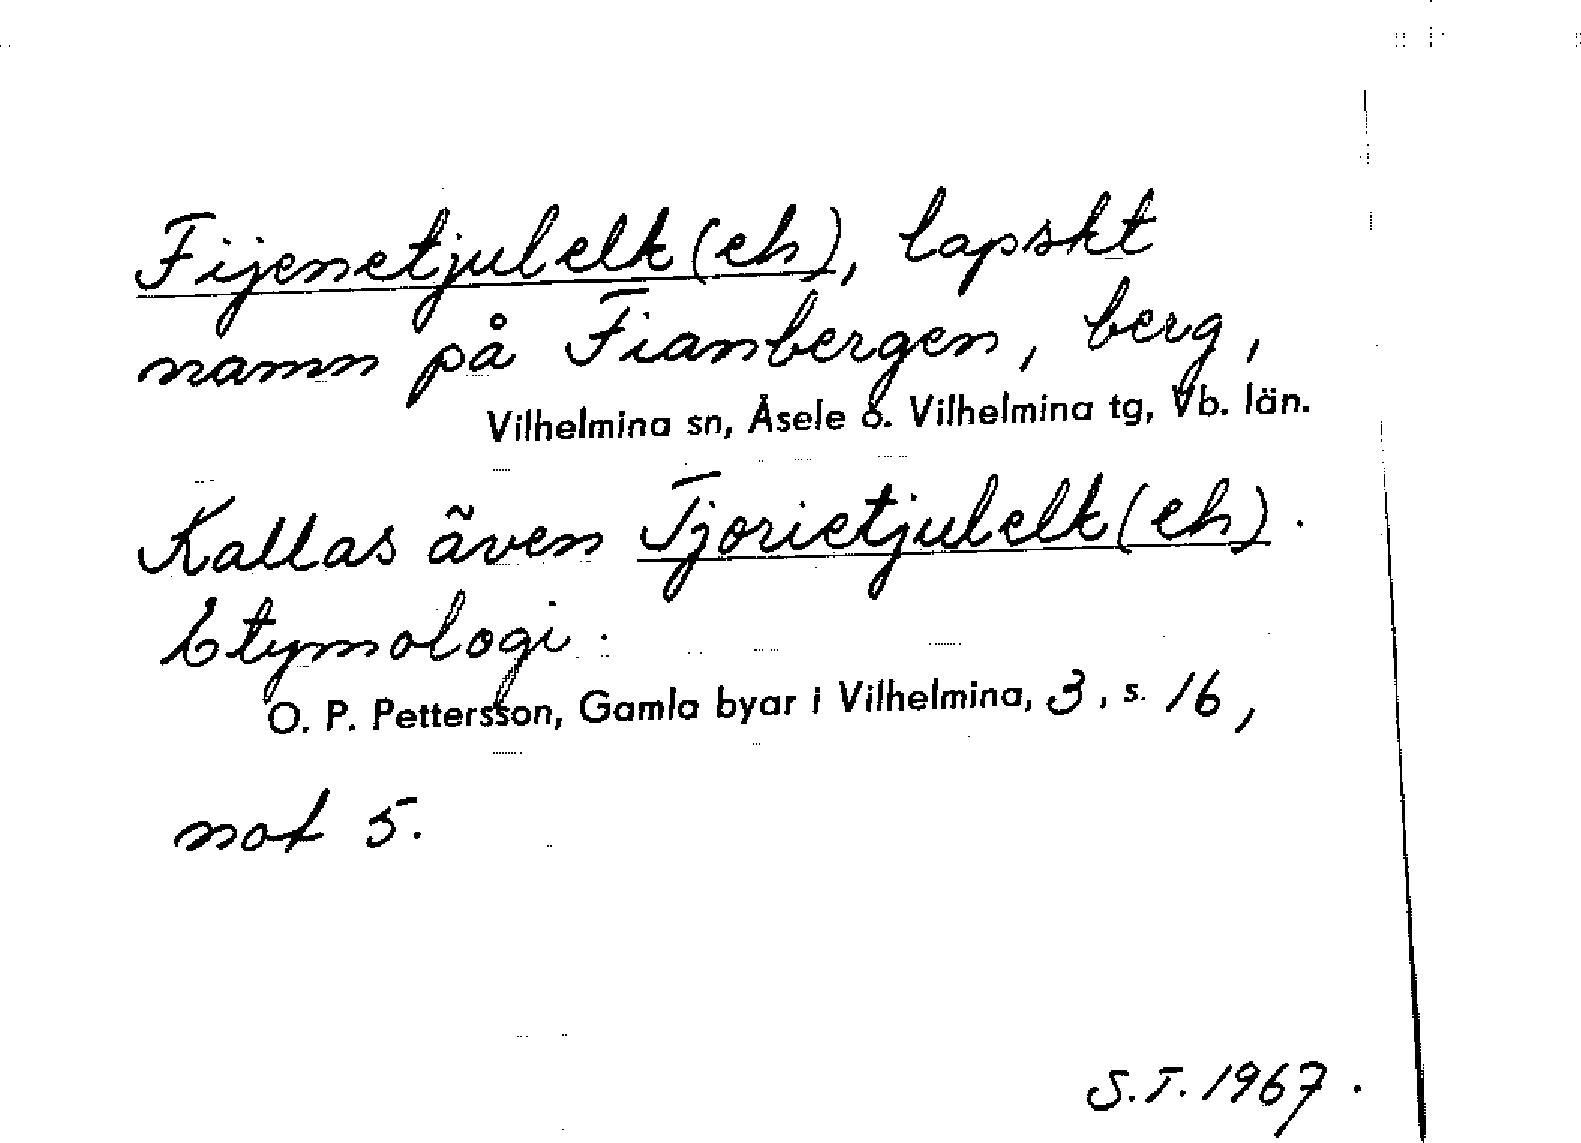 Fijenetjulelk(eh), lapskt
namn på Fianbergen, berg,
Vilhelmina sn, Åsele o. Vilhelmina tg, Vb. län.
Kallas även Tjorietjulelk(eh).
Etymologi.
O. P. Pettersson, Gamla byar i Vilhelmina, 3, s. 16,
not 5.
S.T. 1967.